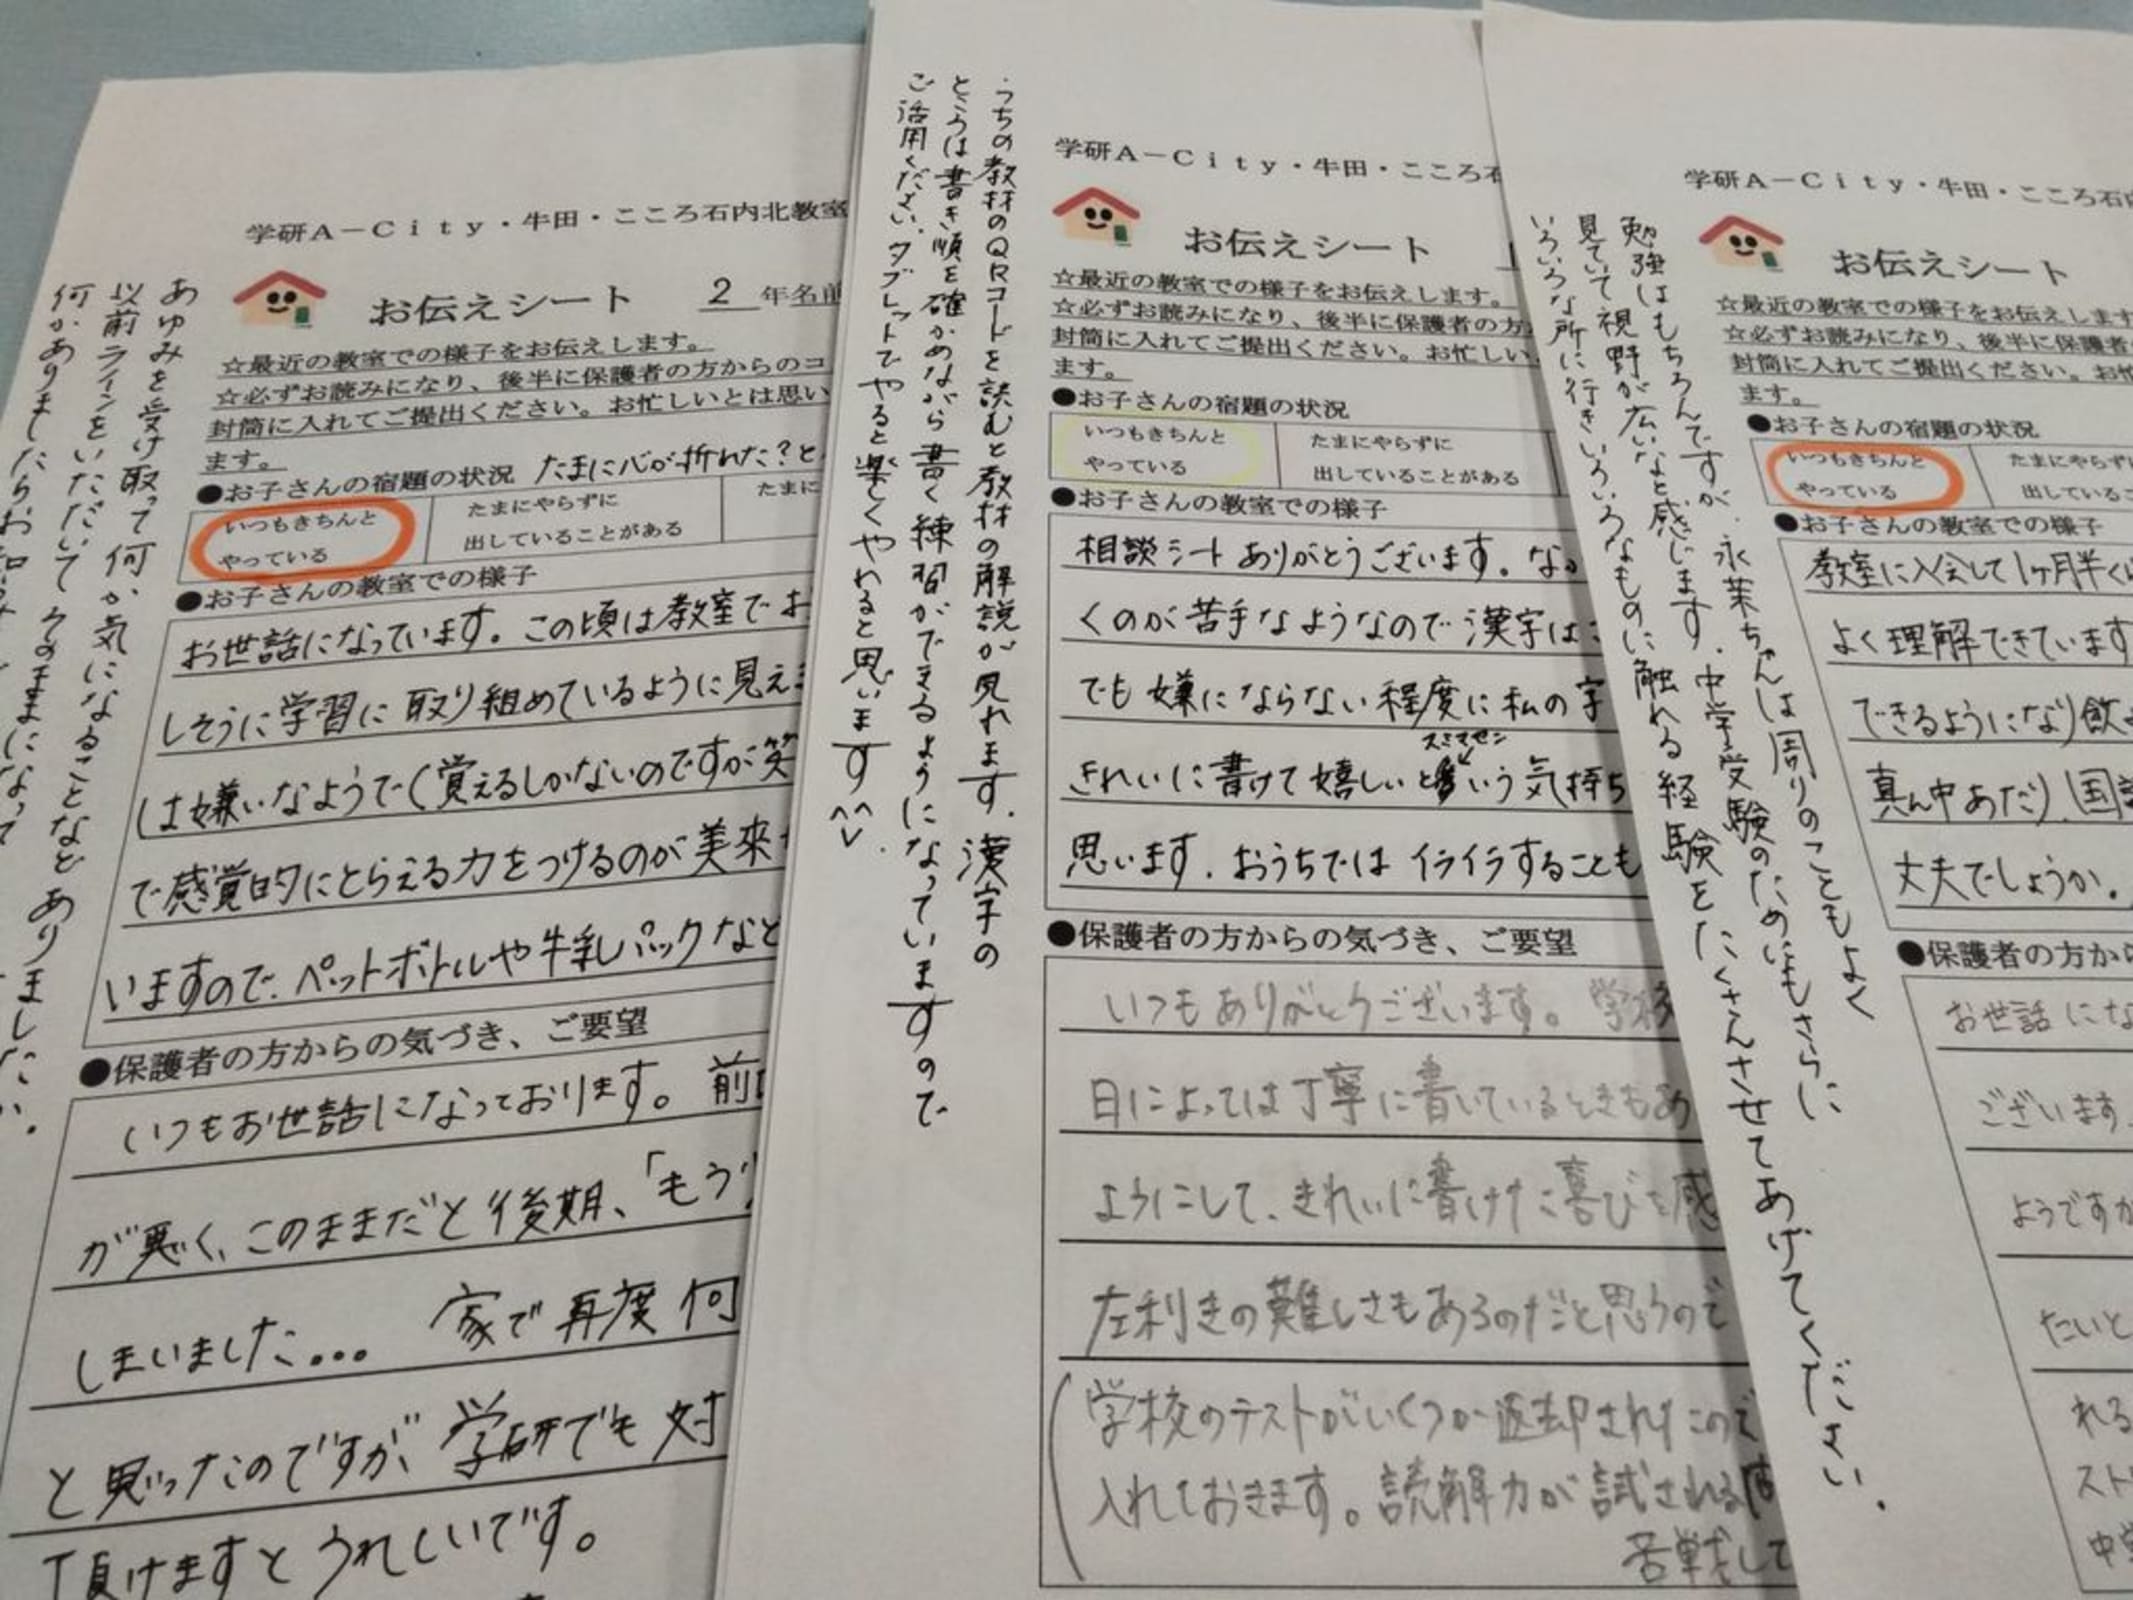 あゆみを受け取って何か気になることなどありましたか。
以前ラインをいただいてそのままになって
何かありましたらお知
学研A－City・牛田・こころ石内北教室
お伝えシート 2 年名前
☆最近の教室での様子をお伝えします。
☆必ずお読みになり、後半に保護者の方からのコ
封筒に入れてご提出ください。お忙しいとは思い
ます。
●お子さんの宿題の状況 たまに心が折れた？と
いつもきちんと
やっている
たまにやらずに
出していることがある
たまに
●お子さんの教室での様子
お世話になっています。この頃は教室でお
しそうに学習に取り組めているように見え
は嫌いなようで(覚えるしかないのですが笑
で感覚的にとらえる力をつけるのが美来
いますので、ペットボトルや牛乳パックなど
●保護者の方からの気づき、ご要望
いつもお世話になっております。前
が悪く、このままだと後期、「もう
しまいました... 家で再度何
と思ったのですが、学研でも対
頂けますとうれしいです。
・うちの教材のQRコードを読むと教材の解説が見れます。漢字の
ところは書き順を確かめながら書く練習ができるようになっていますので
ご活用ください。タブレットでやると楽しくやれると思います^^
学研A－City・牛田・こころ石
お伝えシート
☆最近の教室での様子をお伝えします。
☆必ずお読みになり、後半に保護者の方
封筒に入れてご提出ください。お忙しい
ます。
●お子さんの宿題の状況
いつもきちんと
やっている
たまにやらずに
出していることがある
●お子さんの教室での様子
相談シートありがとうございます。な
くのが苦手なようなので漢字は
でも嫌にならない程度に私の字
スミマセン
きれいに書けて嬉しいという気持ち
思います。おうちではイライラすることも
●保護者の方からの気づき、ご要望
いつもありがとうございます。学校
日によっては丁寧に書いているときもあ
ようにして、きれいに書けた喜びを感
左利きの難しさもあるのだと思うので
(学校のテストがいくつか返却されたので
入れておきます。読解力が試される
苦戦して
勉強はもちろんですが、永茉ちゃんは周りのこともよく
見ていて視野が広いなと感じます。中学受験のためにもさらに
いろいろな所に行きいろいろなものに触れる経験をたくさんさせてあげてください。
学研A－City・牛田・こころ石内
お伝えシート
☆最近の教室での様子をお伝えします
☆必ずお読みになり、後半に保護者
封筒に入れてご提出ください。お忙
ます。
●お子さんの宿題の状況
いつもきちんと
やっている
たまにやらずに
出していること
●お子さんの教室での様子
教室に入会して1ヶ月半く
よく理解できています
できるようになり飲
真ん中あたり、国
丈夫でしょうか。
●保護者の方から
お世話にな
ございます
ようですが
たいと
れる
スト
中